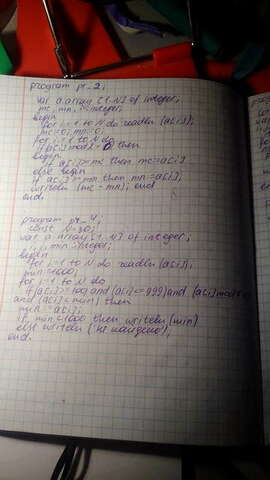 program pr-2;
var a array [1..N] of integer;
mc, mn, i: integer;
begin
for i:=1 to N do readln (a[i]);
mc:=0; mn:=0;
for i:=1 to N do
if a[i] mod 2=0 then
begin
if a[i]>mc then mc:=a[i]
else begin
if a[i]>mn then mn:=a[i]
writeln (mc-mn); end
end.
program pr-4;
const N=30;
var a array [1..N] of integer;
i, j, min: integer;
begin
for i:=1 to N do readln (a[i]);
min:=1000;
for i:=1 to N do
if (a[i]>=100) and (a[i]<=999) and (a[i] mod
and (a[i]<min) then
min:=a[i];
if min<1000 then writeln (min)
else writeln ('не найдено');
end.